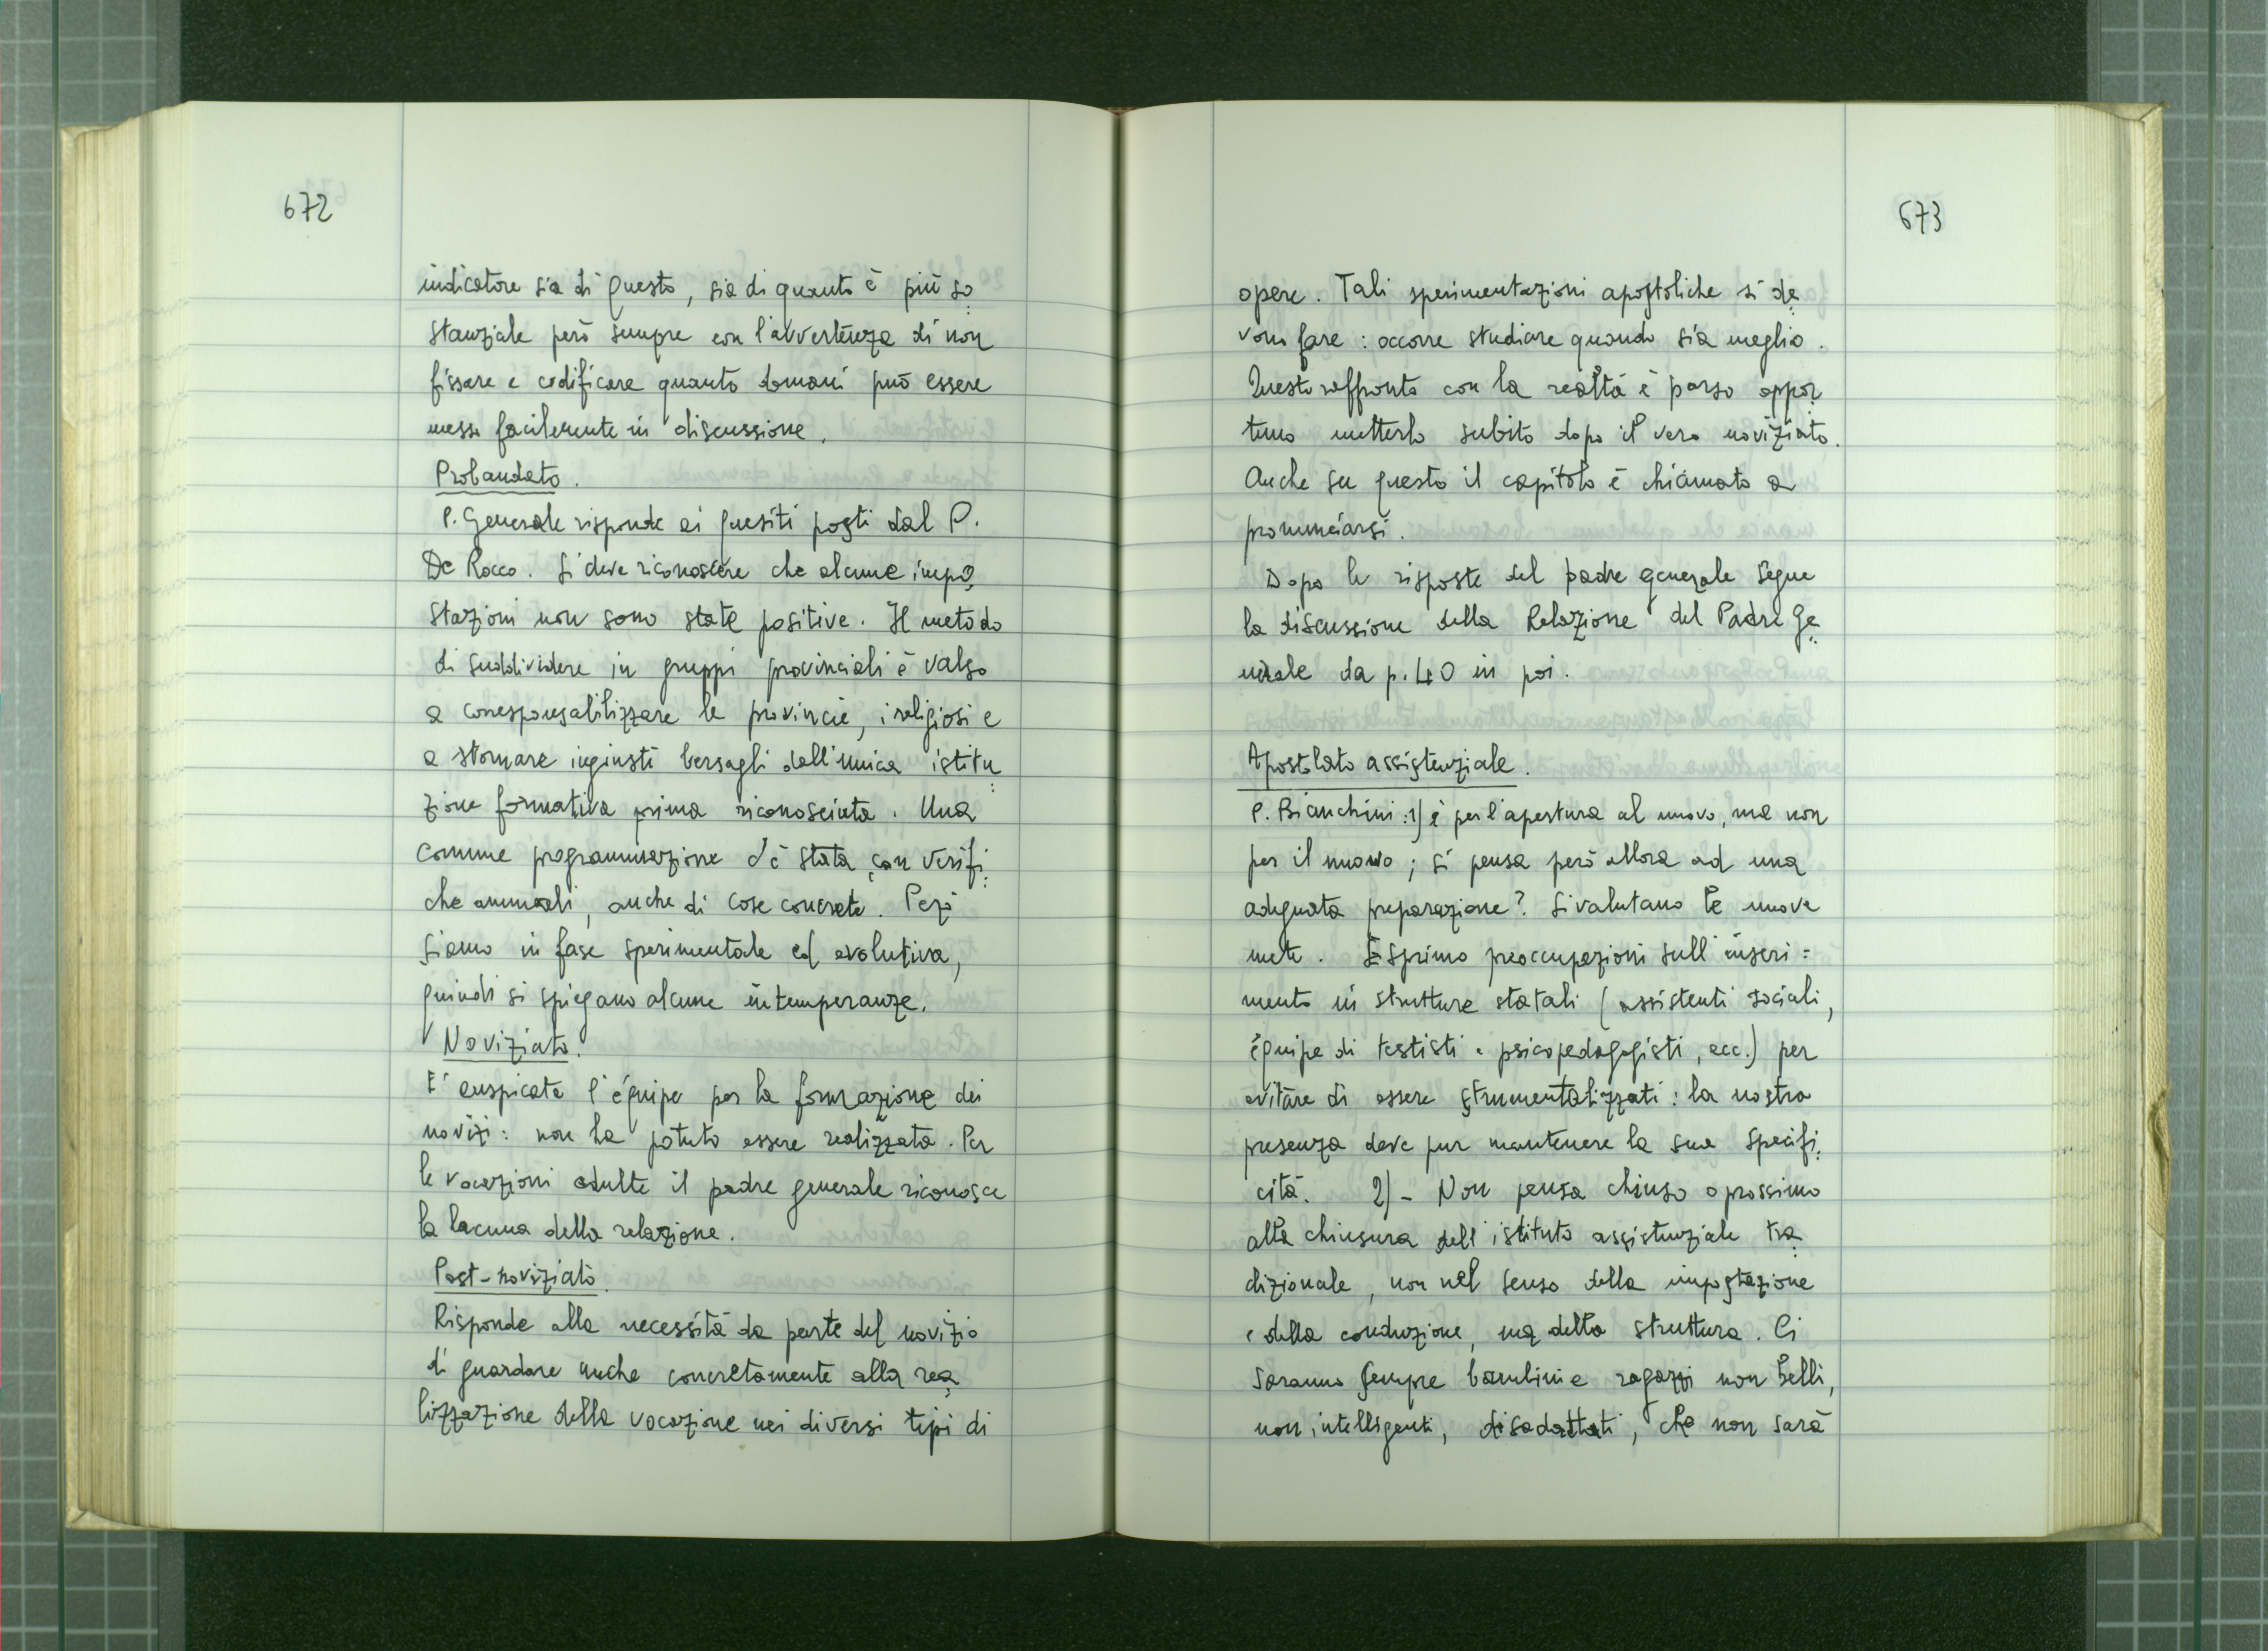 672
indicatore sia di questo, sia di quanto è più so
stanziale però sempre con l'avvertenza di non
fissare e codificare quanto domani può essere
messo facilmente in discussione.
Probandato.
P. Generale risponde ai quesiti posti dal P.
De Rocco. Si deve riconoscere che alcune impo
stazioni non sono state positive. Il metodo
di suddividere in gruppi provinciali è valso
a corresponsabilizzare le provincie, i religiosi e
a stornare ingiusti bersagli dall'unica istitu
zione formativa prima riconosciuta. Una
comune programmazione c'è stata, con verifi
che annuali, anche di cose concrete. Però
siamo in fase sperimentale ed evolutiva,
quindi si spiegano alcune intemperanze.
Noviziato.
E' auspicata l'équipe per la formazione dei
novizi: non ha potuto essere realizzata. Per
le vocazioni adulte il padre generale riconosce
la lacuna della relazione.
Post-noviziato.
Risponde alla necessità da parte del novizio
di guardare anche concretamente alla rea
lizzazione della vocazione nei diversi tipi di
673
opere. Tali sperimentazioni apostoliche si de
vono fare: occorre studiare quando sia meglio.
Questo raffronto con la realtà è parso oppor
tuno metterlo subito dopo il vero noviziato.
Anche su questo il capitolo è chiamato a
pronunciarsi.
Dopo le risposte del padre generale segue
la discussione della Relazione del Padre Ge
nerale da p. 40 in poi.
Apostolato assistenziale.
P. Bianchini: 1) è per l'apertura al nuovo, ma non
per il nuovo; si pensa però allora ad una
adeguata preparazione? Si valutano le nuove
mete. Esprimo preoccupazioni sull'inseri=
mento in strutture statali (assistenti sociali,
équipe di testisti e psicopedagogisti, ecc.) per
evitare di essere strumentalizzati: la nostra
presenza deve pur mantenere la sua specifi
cità. 2) - Non pensa chiuso o prossimo
alla chiusura dell'istituto assistenziale tra
dizionale, non nel senso della impostazione
e della conduzione, ma della struttura. Ci
saranno sempre bambini e ragazzi non belli,
non intelligenti, disadattati, che non sarà